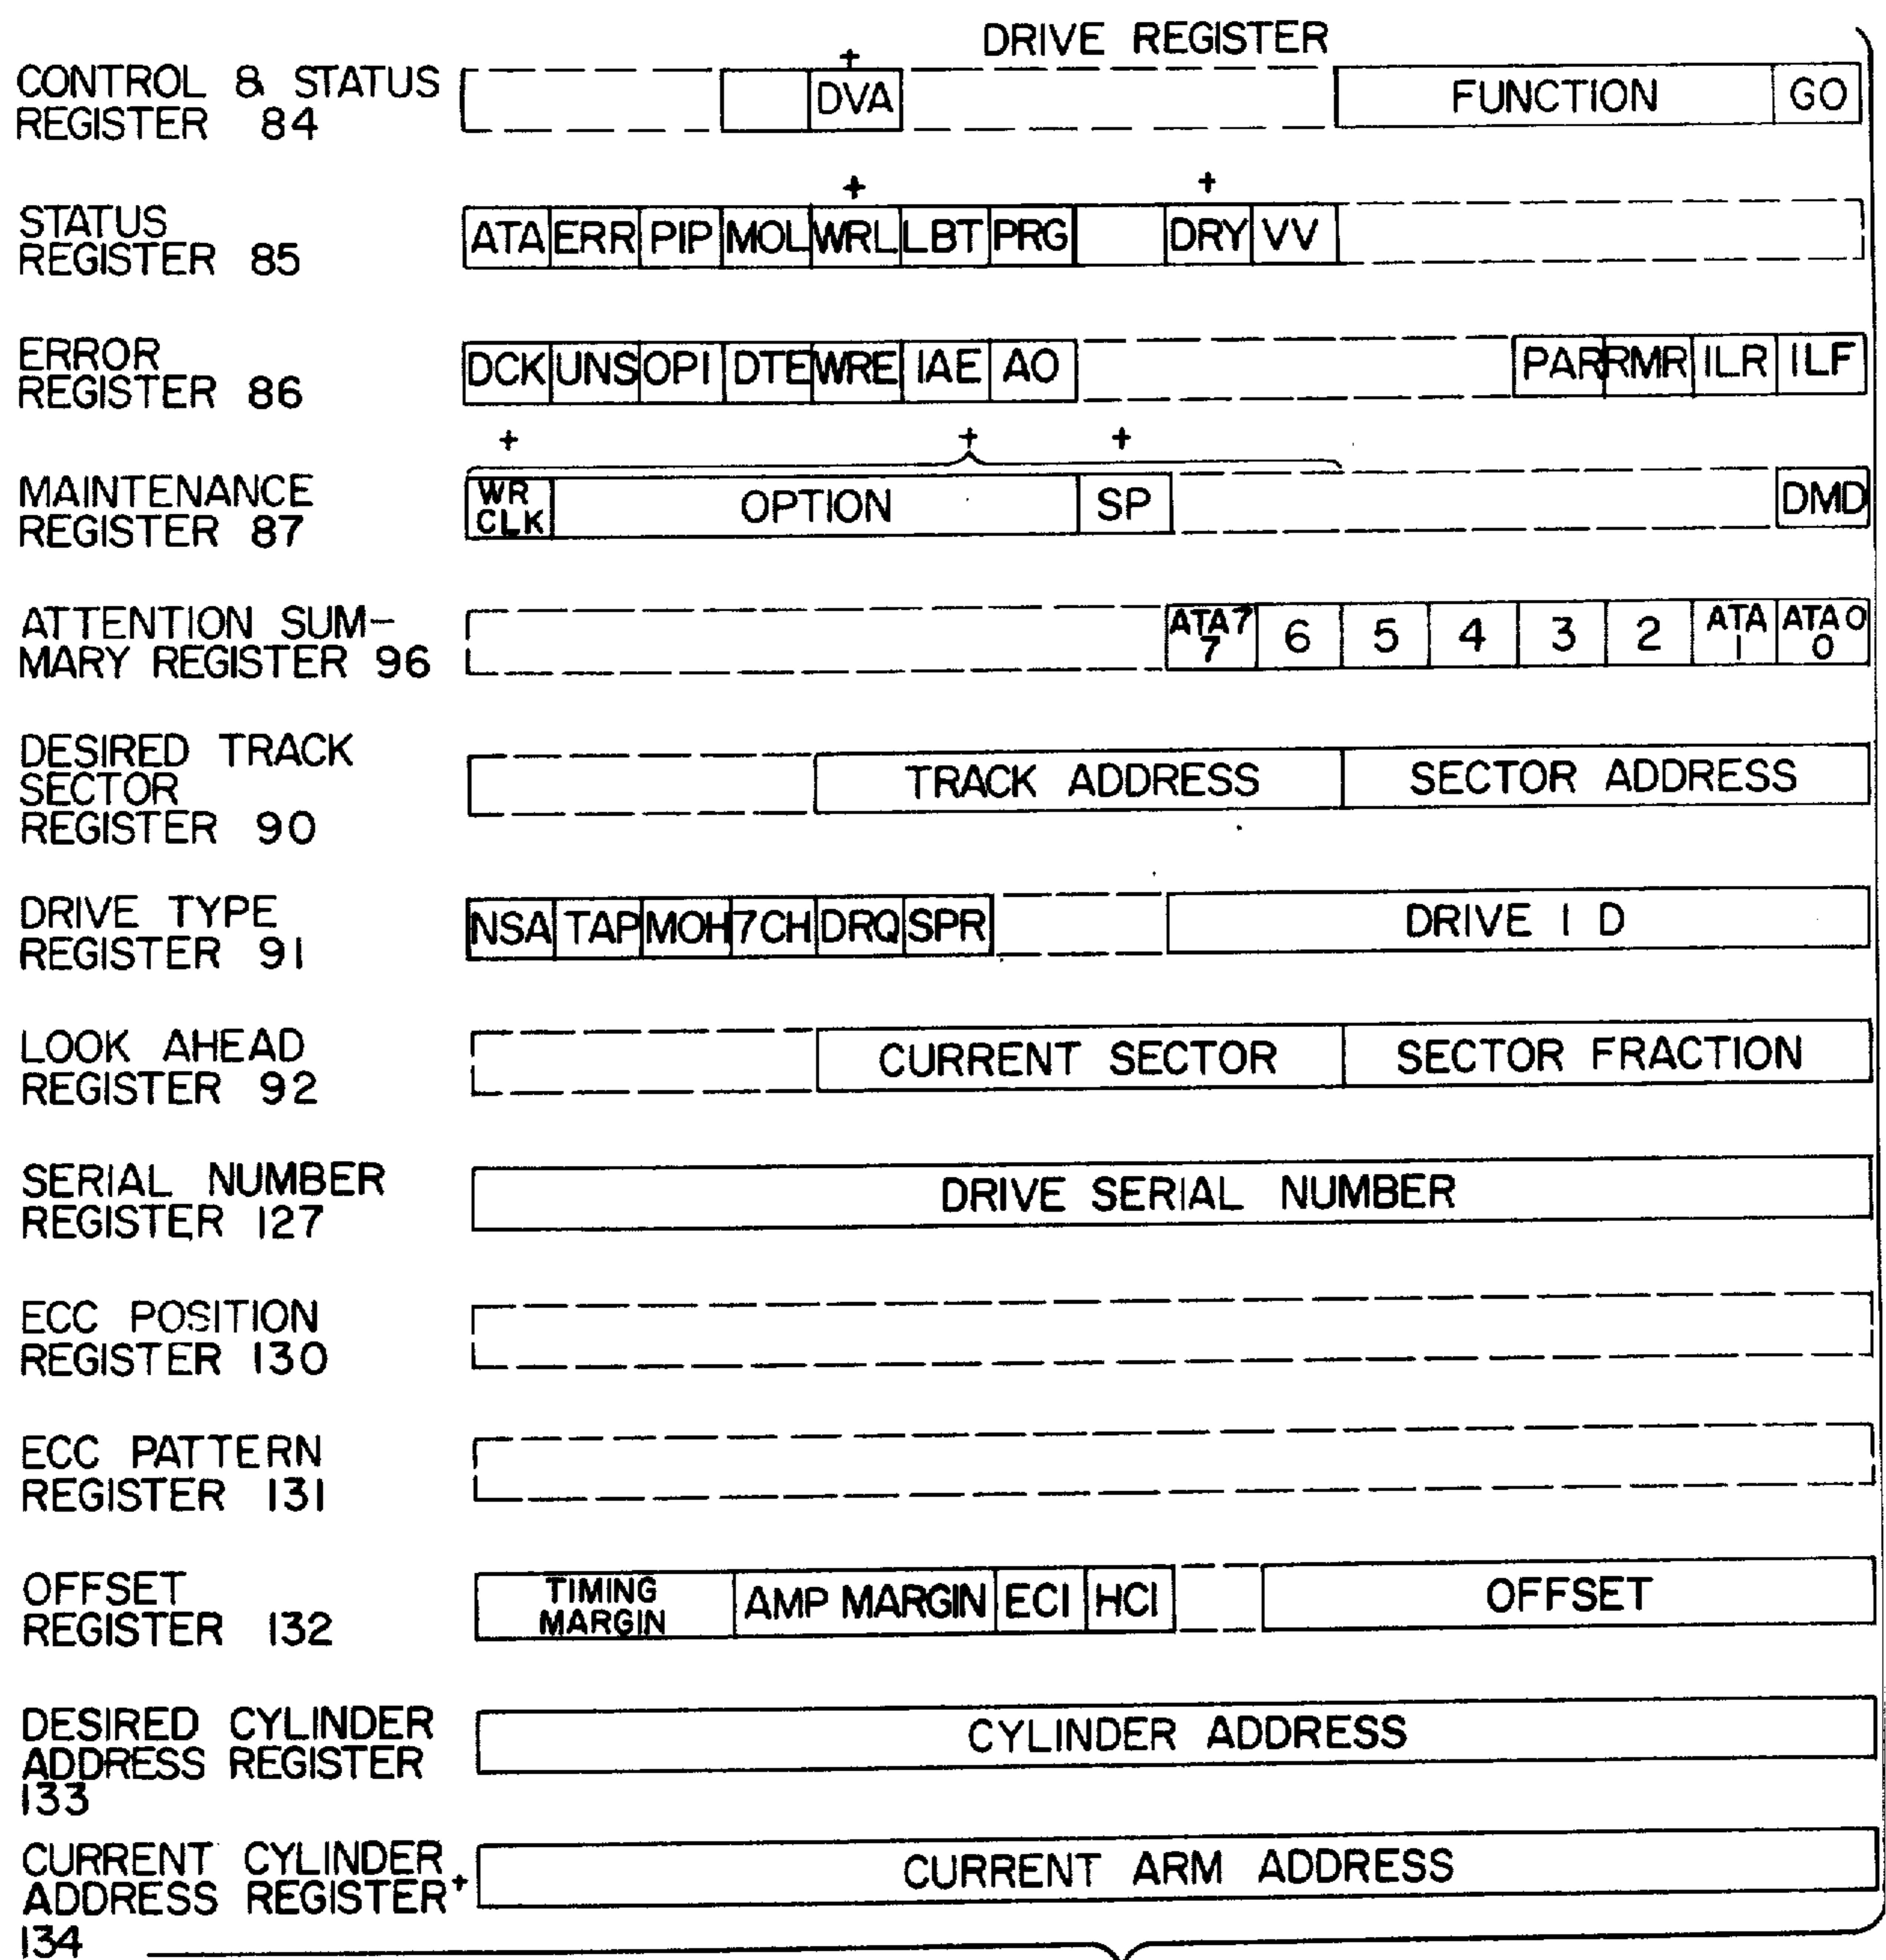 DRIVE REGISTER
CONTROL & STATUS
REGISTER 84
+
DVA
FUNCTION
GO
STATUS
REGISTER 85
+
+
ATA ERR PIP MOL WRL LBT PRG DRY VV
ERROR
REGISTER 86
DCK UNS OPI DTE WRE IAE AO PAR RMR ILR ILF
+
+
+
MAINTENANCE
REGISTER 87
WR
CLK
OPTION
SP
DMD
ATTENTION SUM-
MARY REGISTER 96
ATA7
7
6
5
4
3
2
ATA
1
ATA0
0
DESIRED TRACK
SECTOR
REGISTER 90
TRACK ADDRESS
SECTOR ADDRESS
DRIVE TYPE
REGISTER 91
NSA TAP MOH 7CH DRQ SPR
DRIVE I D
LOOK AHEAD
REGISTER 92
CURRENT SECTOR
SECTOR FRACTION
SERIAL NUMBER
REGISTER 127
DRIVE SERIAL NUMBER
ECC POSITION
REGISTER 130
ECC PATTERN
REGISTER 131
OFFSET
REGISTER 132
TIMING
MARGIN
AMP MARGIN
ECI
HCI
OFFSET
DESIRED CYLINDER
ADDRESS REGISTER
133
CYLINDER ADDRESS
CURRENT CYLINDER
ADDRESS REGISTER+
134
CURRENT ARM ADDRESS